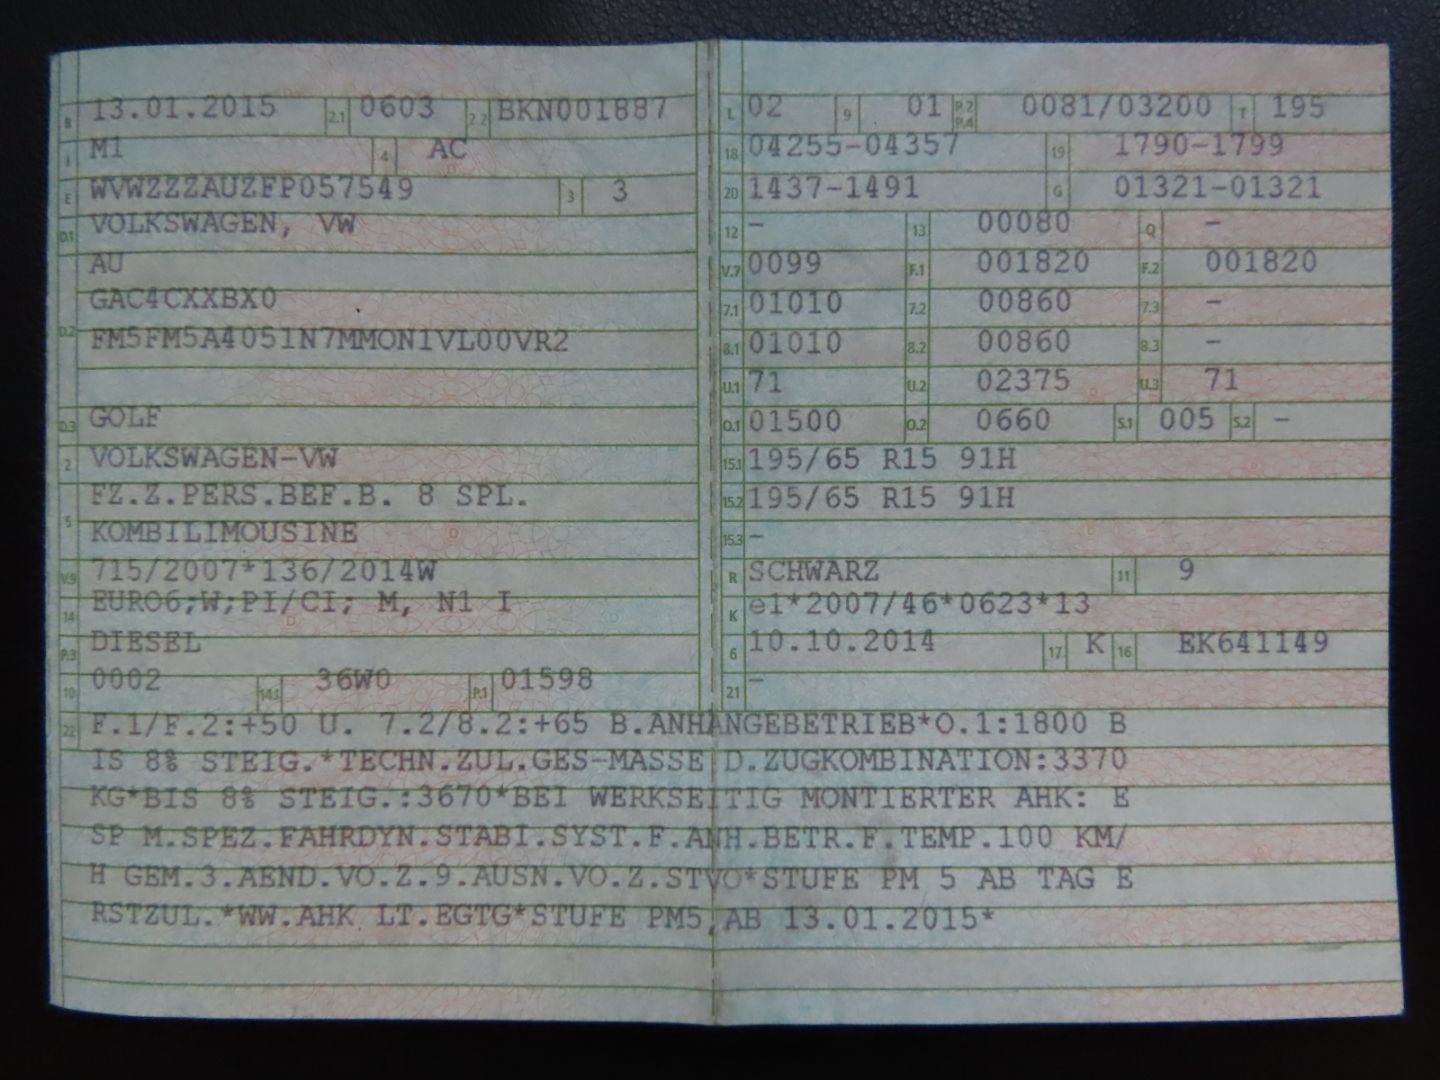 B 13.01.2015 2.1 0603 2.2 BKN001887
J M1 4 AC
E WVWZZZAUZFP057549 3 3
D.1 VOLKSWAGEN, VW
AU
D.2 GAC4CXXBX0
FM5FM5A4051N7MMON1VL00VR2
D.3 GOLF
2 VOLKSWAGEN-VW
5 FZ.Z.PERS.BEF.B. 8 SPL.
KOMBILIMOUSINE
V.9 715/2007*136/2014W
14 EURO6;W;PI/CI; M, N1 I
P.3 DIESEL
10 0002 14.1 36W0 P.1 01598
L 02 9 01 P.2 P.4 0081/03200 T 195
18 04255-04357 19 1790-1799
20 1437-1491 G 01321-01321
12 - 13 00080 Q -
V.7 0099 F.1 001820 F.2 001820
7.1 01010 7.2 00860 7.3 -
8.1 01010 8.2 00860 8.3 -
U.1 71 U.2 02375 U.3 71
O.1 01500 O.2 0660 S.1 005 S.2 -
15.1 195/65 R15 91H
15.2 195/65 R15 91H
15.3 -
R SCHWARZ 11 9
K e1*2007/46*0623*13
6 10.10.2014 17 K 16 EK641149
21 -
22 F.1/F.2:+50 U. 7.2/8.2:+65 B.ANHANGEBETRIEB*O.1:1800 B
IS 8% STEIG.*TECHN.ZUL.GES-MASSE D.ZUGKOMBINATION:3370
KG*BIS 8% STEIG.:3670*BEI WERKSEITIG MONTIERTER AHK: E
SP M.SPEZ.FAHRDYN.STABI.SYST.F.ANH.BETR.F.TEMP.100 KM/
H GEM.3.AEND.VO.Z.9.AUSN.VO.Z.STVO*STUFE PM 5 AB TAG E
RSTZUL.*WW.AHK LT.EGTG*STUFE PM5,AB 13.01.2015*